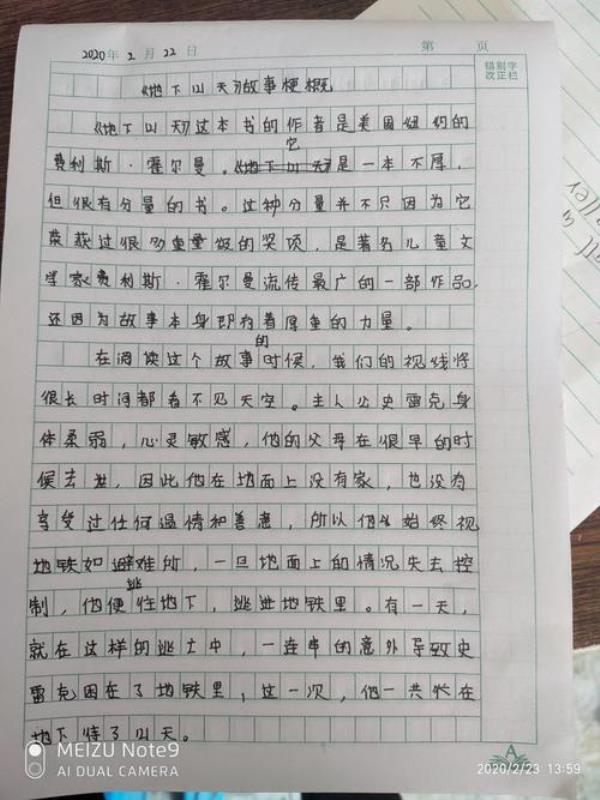 2020年 2 月 22 日
第 页
错别字
改正栏
《地下121天》故事梗概
《地下121天》这本书的作者是美国纽约的
它
费利斯·霍尔曼。《地下121天》是一本不厚,
但很有分量的书。这种分量并不只因为它
荣获过很多重量级的奖项,是著名儿童文
学家费利斯·霍尔曼流传最广的一部作品,
还因为故事本身即有着厚重的力量。
的
在阅读这个故事时候,我们的视线将
很长时间都看不见天空。主人公史雷克身
体柔弱,心灵敏感,他的父母在很早的时
候去世,因此他在地面上没有家,也没有
享受过任何温情和善意,所以他始终视
地铁如避难所,一旦地面上的情况失去控
逃
制,他便往地下,逃进地铁里。有一天,
就在这样的逃亡中,一连串的意外导致史
雷克困在了地铁里,这一次,他一共在
地下待了121天。
MEIZU Note9
AI DUAL CAMERA
2020/2/23 13:59